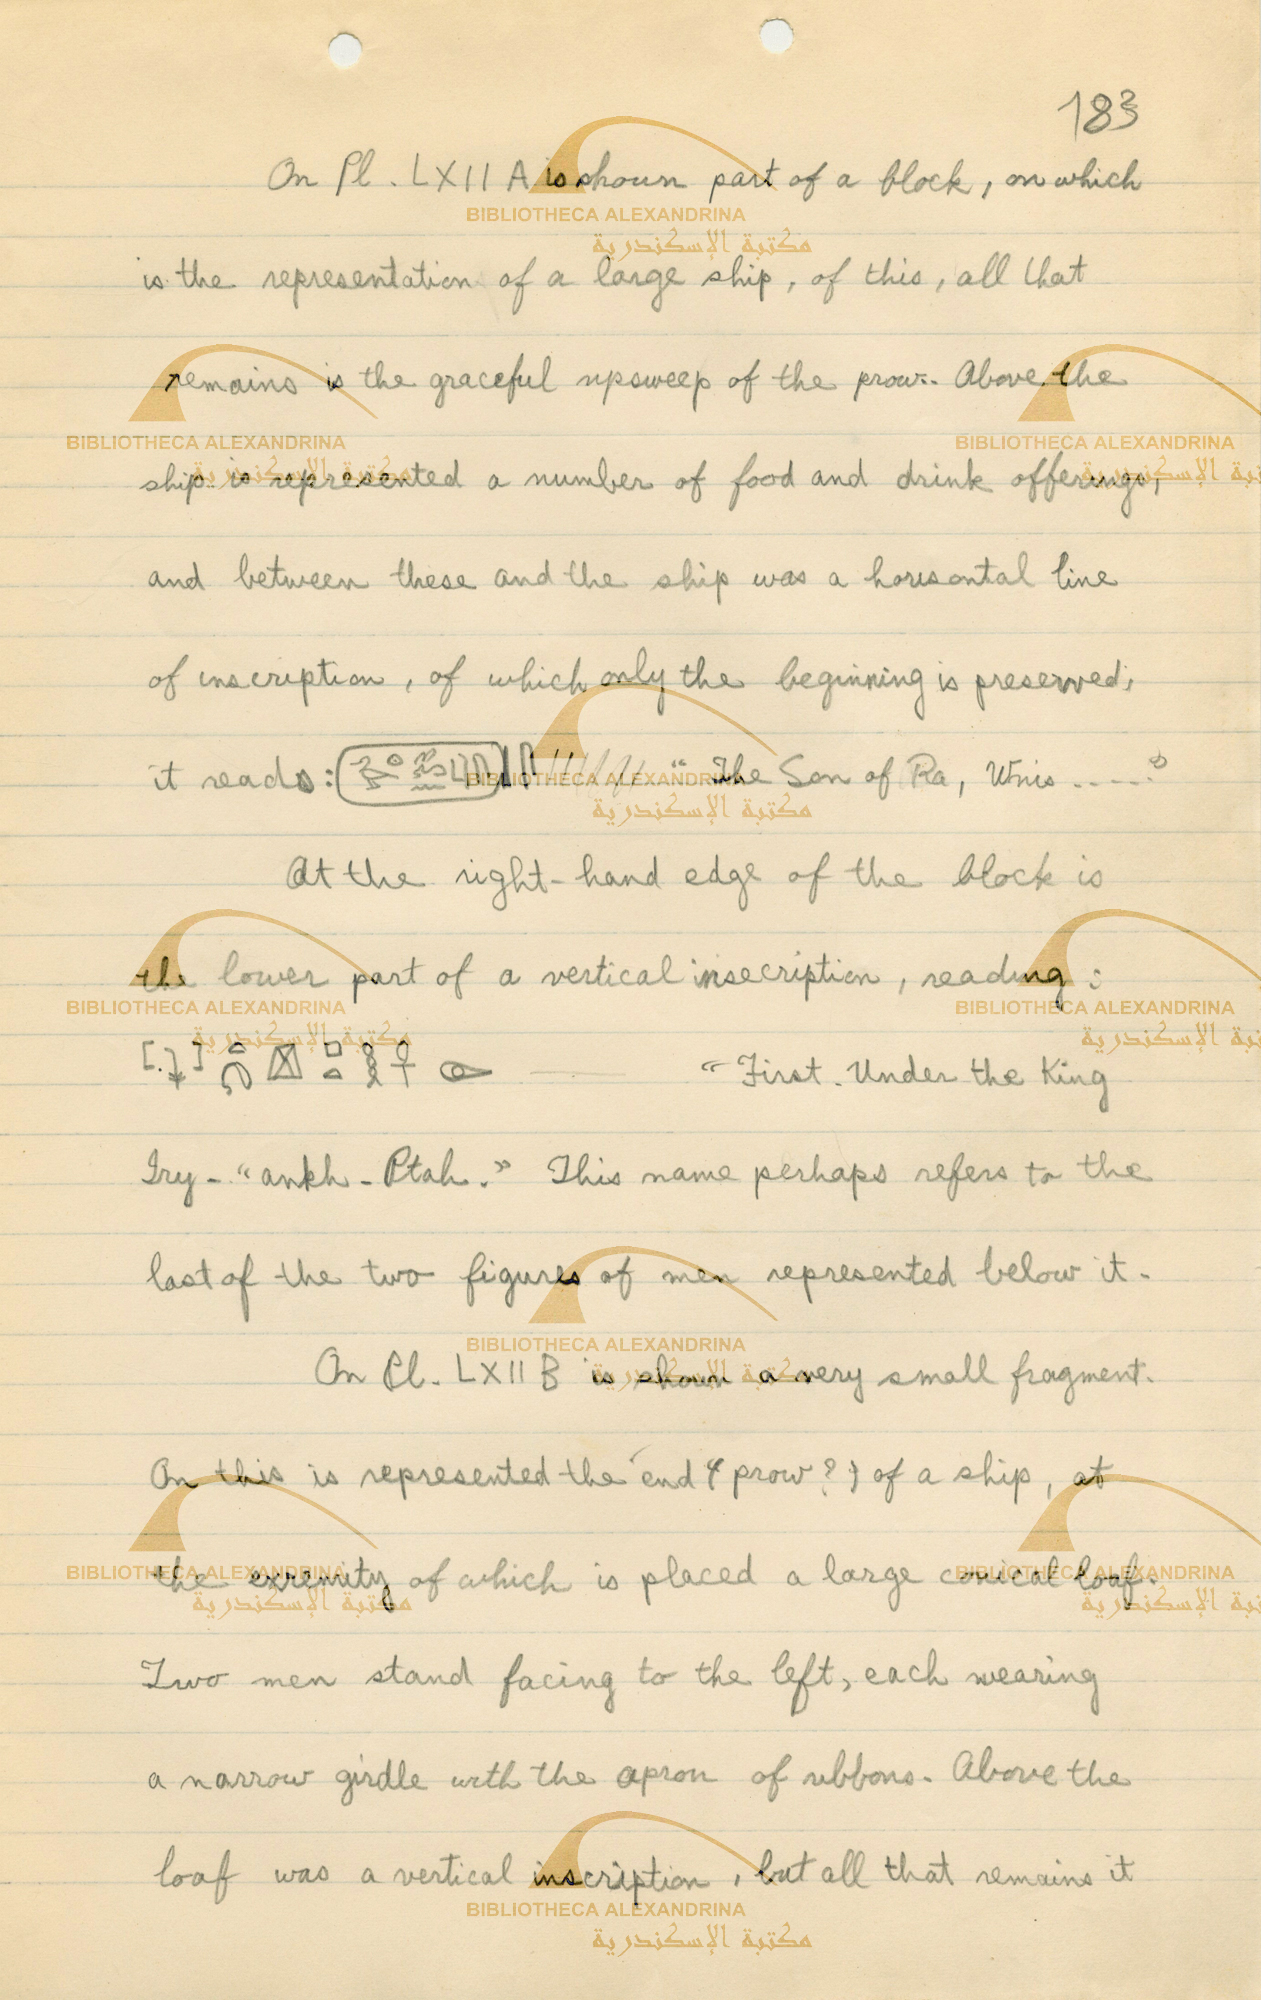 183
On Pl. LXII A is shown part of a block, on which
is the representation of a large ship, of this, all that
remains is the graceful upsweep of the prow. Above the
ship is represented a number of food and drink offerings,
and between these and the ship was a horisontal line
of inscription, of which only the beginning is preserved,
it reads: " The Son of Ra, Wnis ....."
At the right-hand edge of the block is
the lower part of a vertical insecription, reading :
"First. Under the King
Iry-"ankh-Ptah." This name perhaps refers to the
last of the two figures of men represented below it.
On Pl. LXII B is shown a very small fragment.
On this is represented the end (prow?) of a ship, at
the exremity of which is placed a large conical loaf.
Two men stand facing to the left, each wearing
a narrow girdle with the apron of ribbons. Above the
loaf was a vertical inscription, but all that remains it
BIBLIOTHECA ALEXANDRINA
مكتبة الإسكندرية